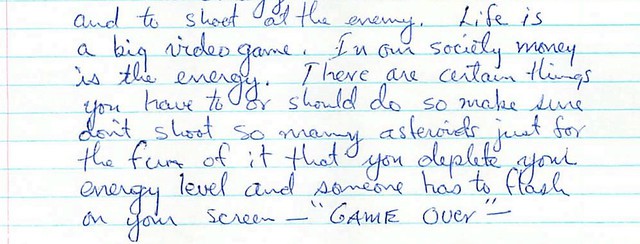 and to shoot at the enemy. Life is
a big video game. In our society money
is the energy. There are certain things
you have to or should do so make sure
don't shoot so many asteroids just for
the fun of it that you deplete your
energy level and someone has to flash
on your screen — "GAME OVER" —